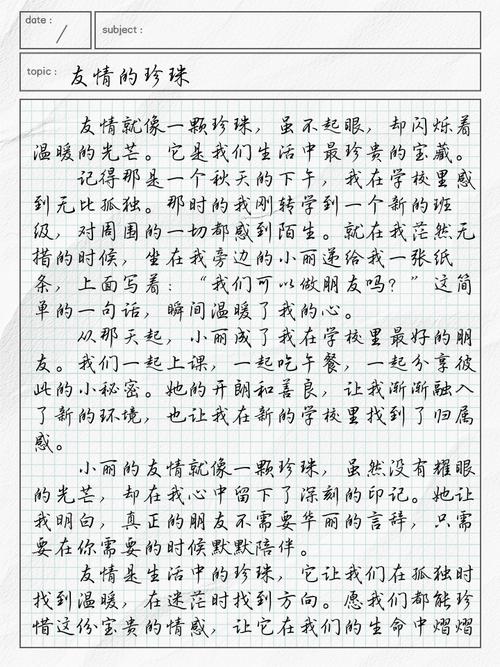 date :
subject :
topic : 友情的珍珠
友情就像一颗珍珠，虽不起眼，却闪烁着
温暖的光芒。它是我们生活中最珍贵的宝藏。
记得那是一个秋天的下午，我在学校里感
到无比孤独。那时的我刚转学到一个新的班
级，对周围的一切都感到陌生。就在我茫然无
措的时候，坐在我旁边的小丽递给我一张纸
条，上面写着：“我们可以做朋友吗？”这简
单的一句话，瞬间温暖了我的心。
从那天起，小丽成了我在学校里最好的朋
友。我们一起上课，一起吃午餐，一起分享彼
此的小秘密。她的开朗和善良，让我渐渐融入
了新的环境，也让我在新的学校里找到了归属
感。
小丽的友情就像一颗珍珠，虽然没有耀眼
的光芒，却在我心中留下了深刻的印记。她让
我明白，真正的朋友不需要华丽的言辞，只需
要在你需要的时候默默陪伴。
友情是生活中的珍珠，它让我们在孤独时
找到温暖，在迷茫时找到方向。愿我们都能珍
惜这份宝贵的情感，让它在我们的生命中熠熠